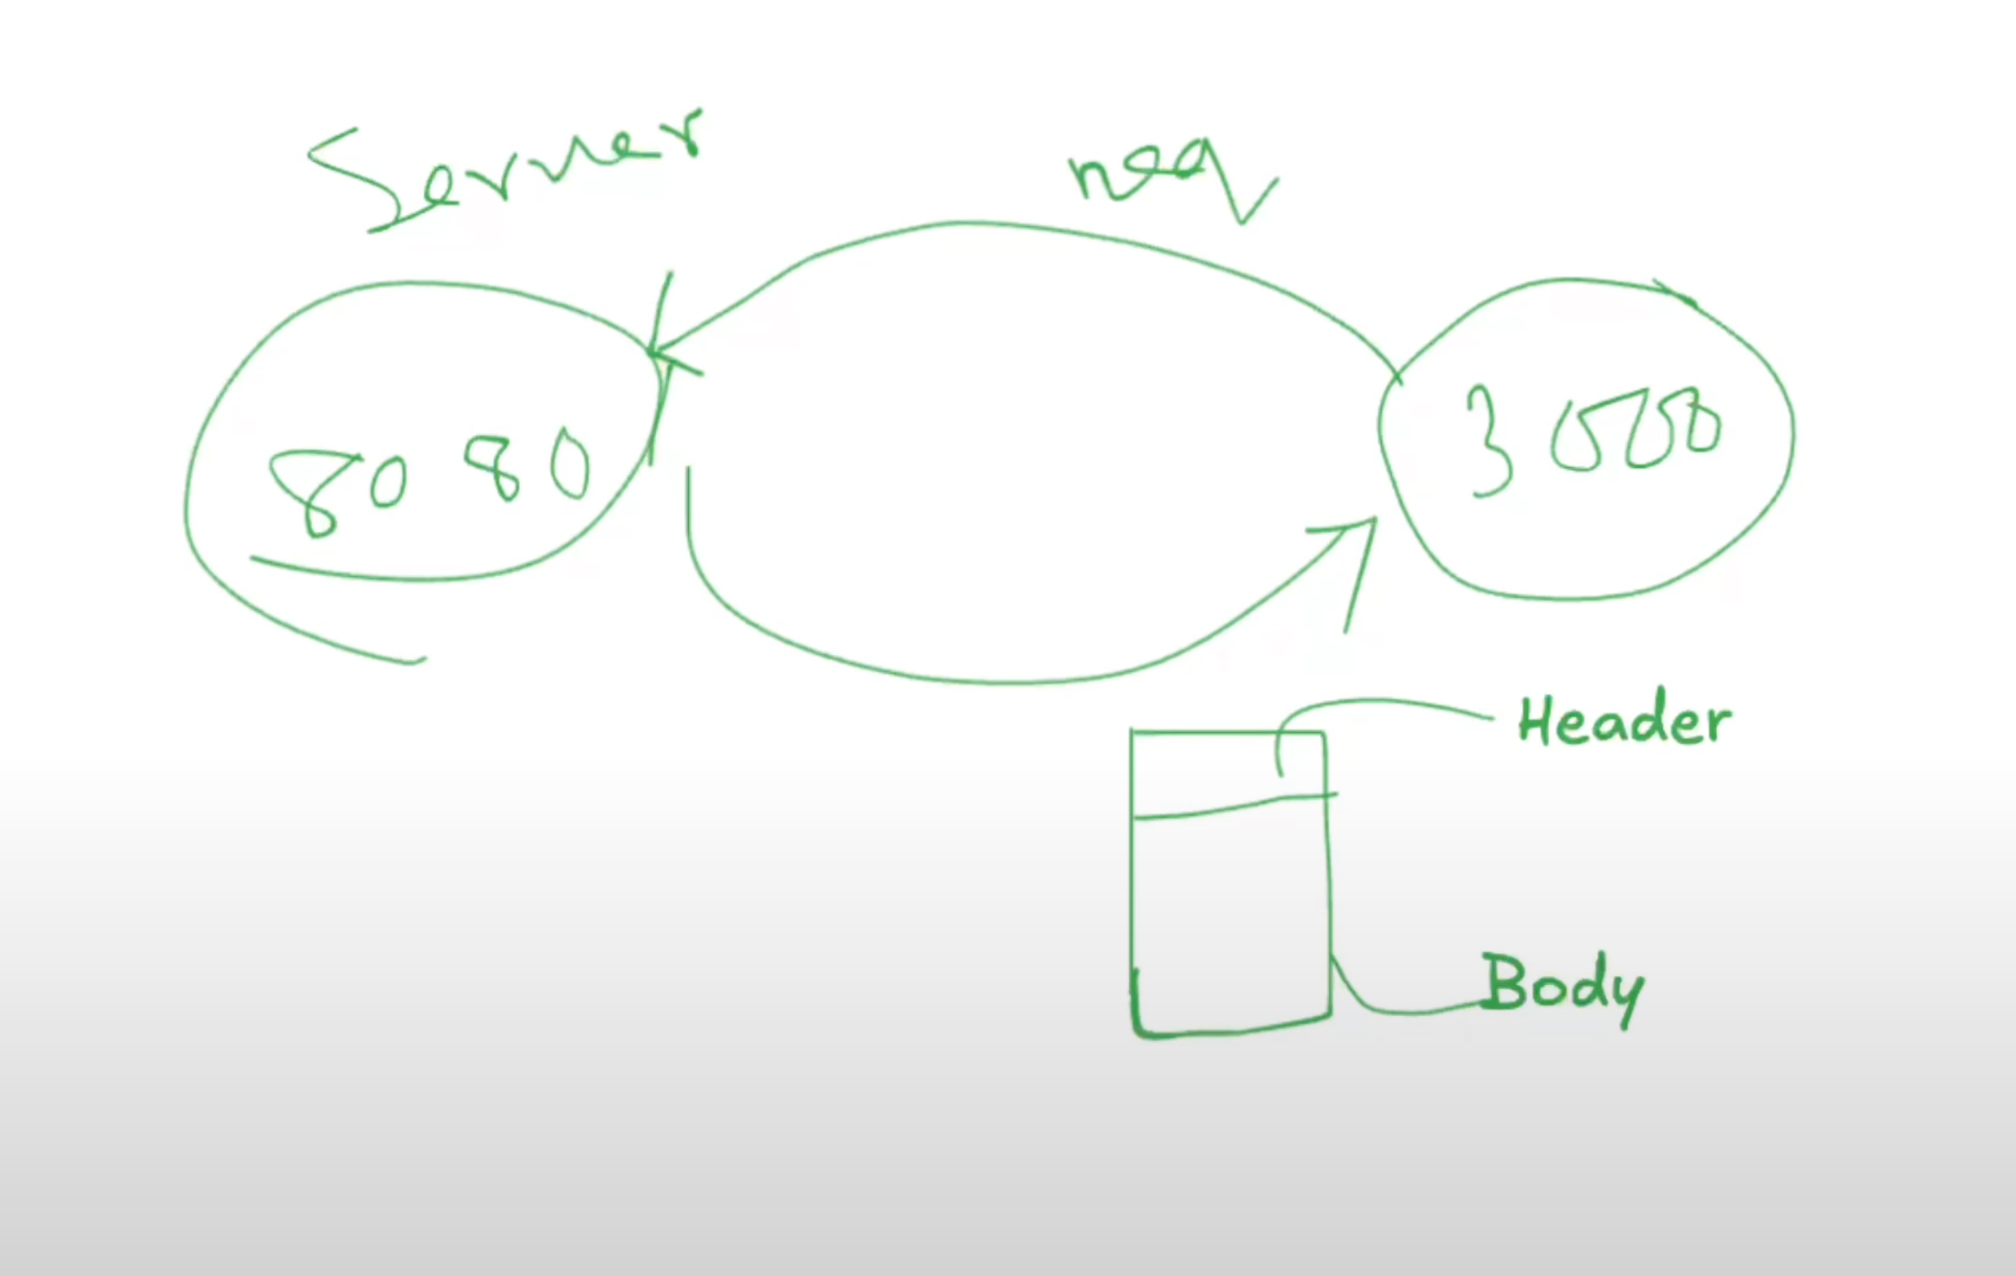 Server
req
8080
3000
Header
Body